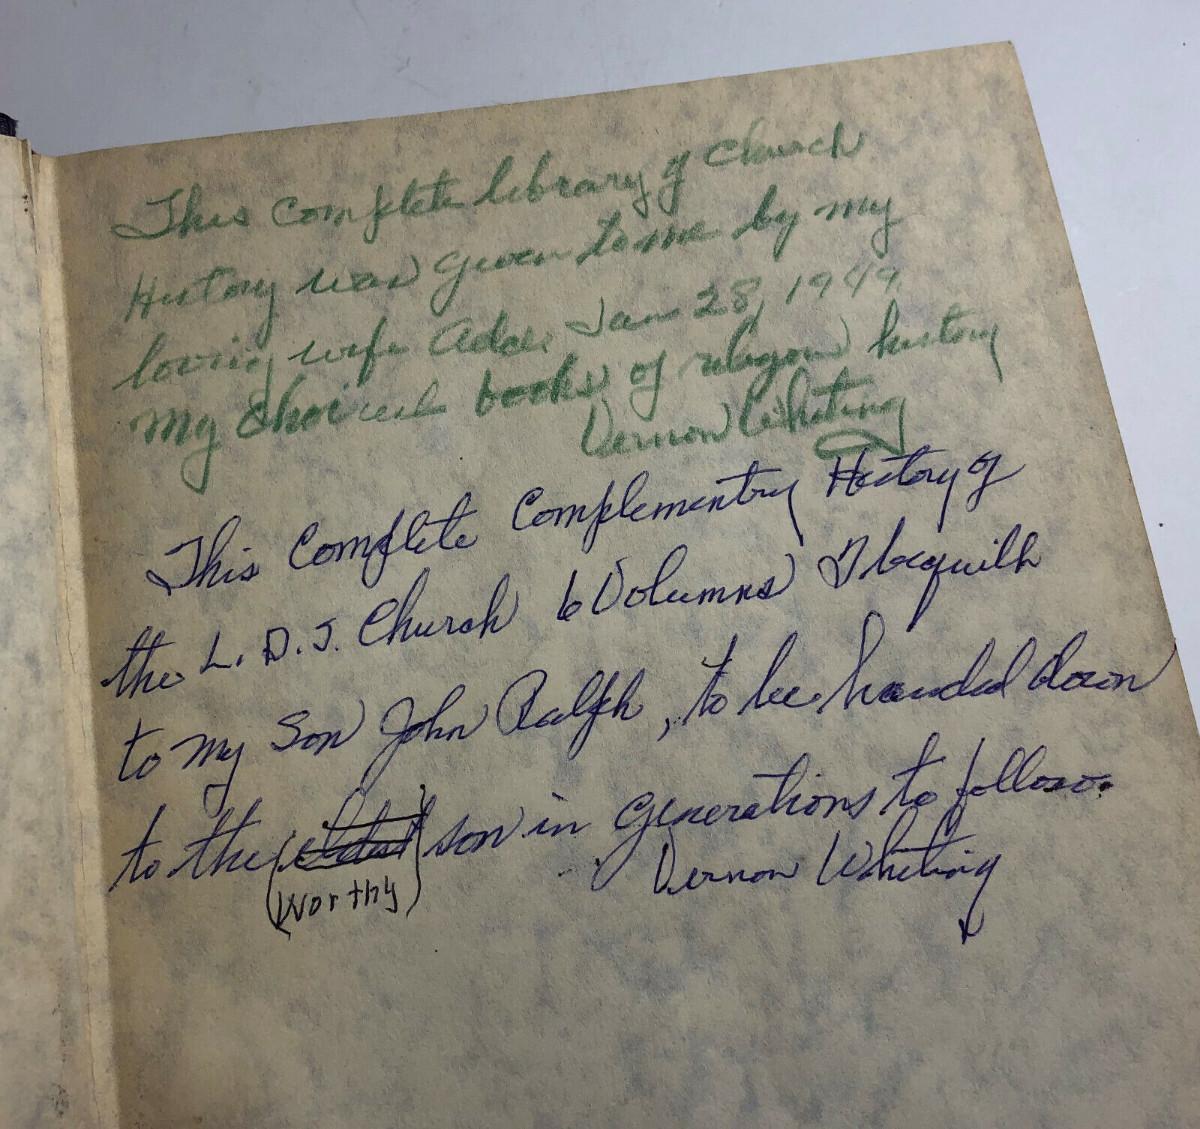 This Complete library of Church
History was given to me by my
loving wife Ada. Jan 28, 1949.
My choicest books of religon history
Vernon Whiting
This Complete Complementry History of
the L.D.S. Church 6 Volumns I bequith
to my Son John Ralph, to be handed down
to the (eldest) son in Generations to follow.
(Worthy)
Vernon Whiting